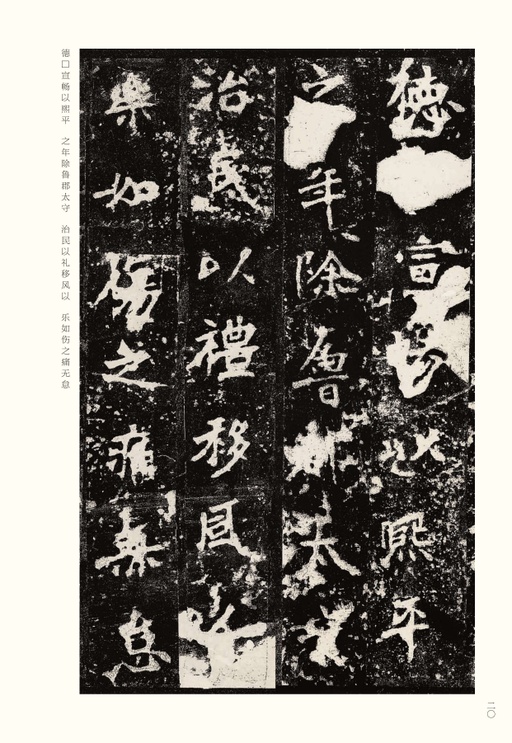 德宣暢以熙平
之年除魯郡太守
治民以禮移風以
樂如傷之痛無怠
德□宣畅以熙平　之年除鲁郡太守　治民以礼移风以　乐如伤之痛无怠
二〇